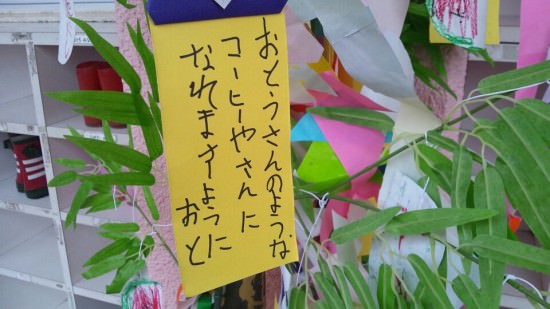 おとうさんのような
コーヒーやさんに
なれますように
おと